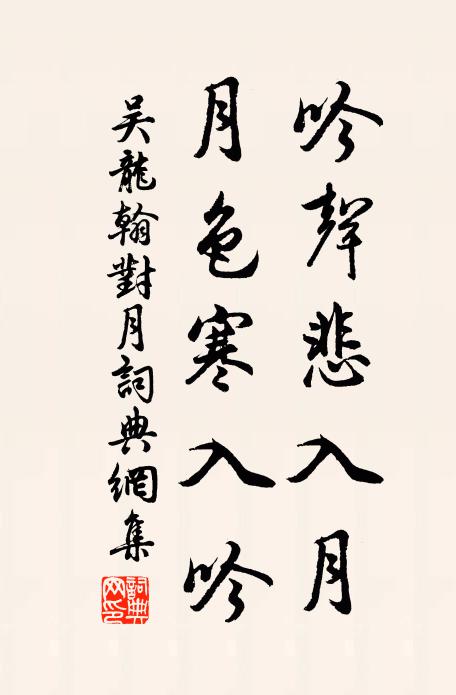 吟聲悲入月
月色寒入吟
吳龍翰對月詞典網集
詞典網印